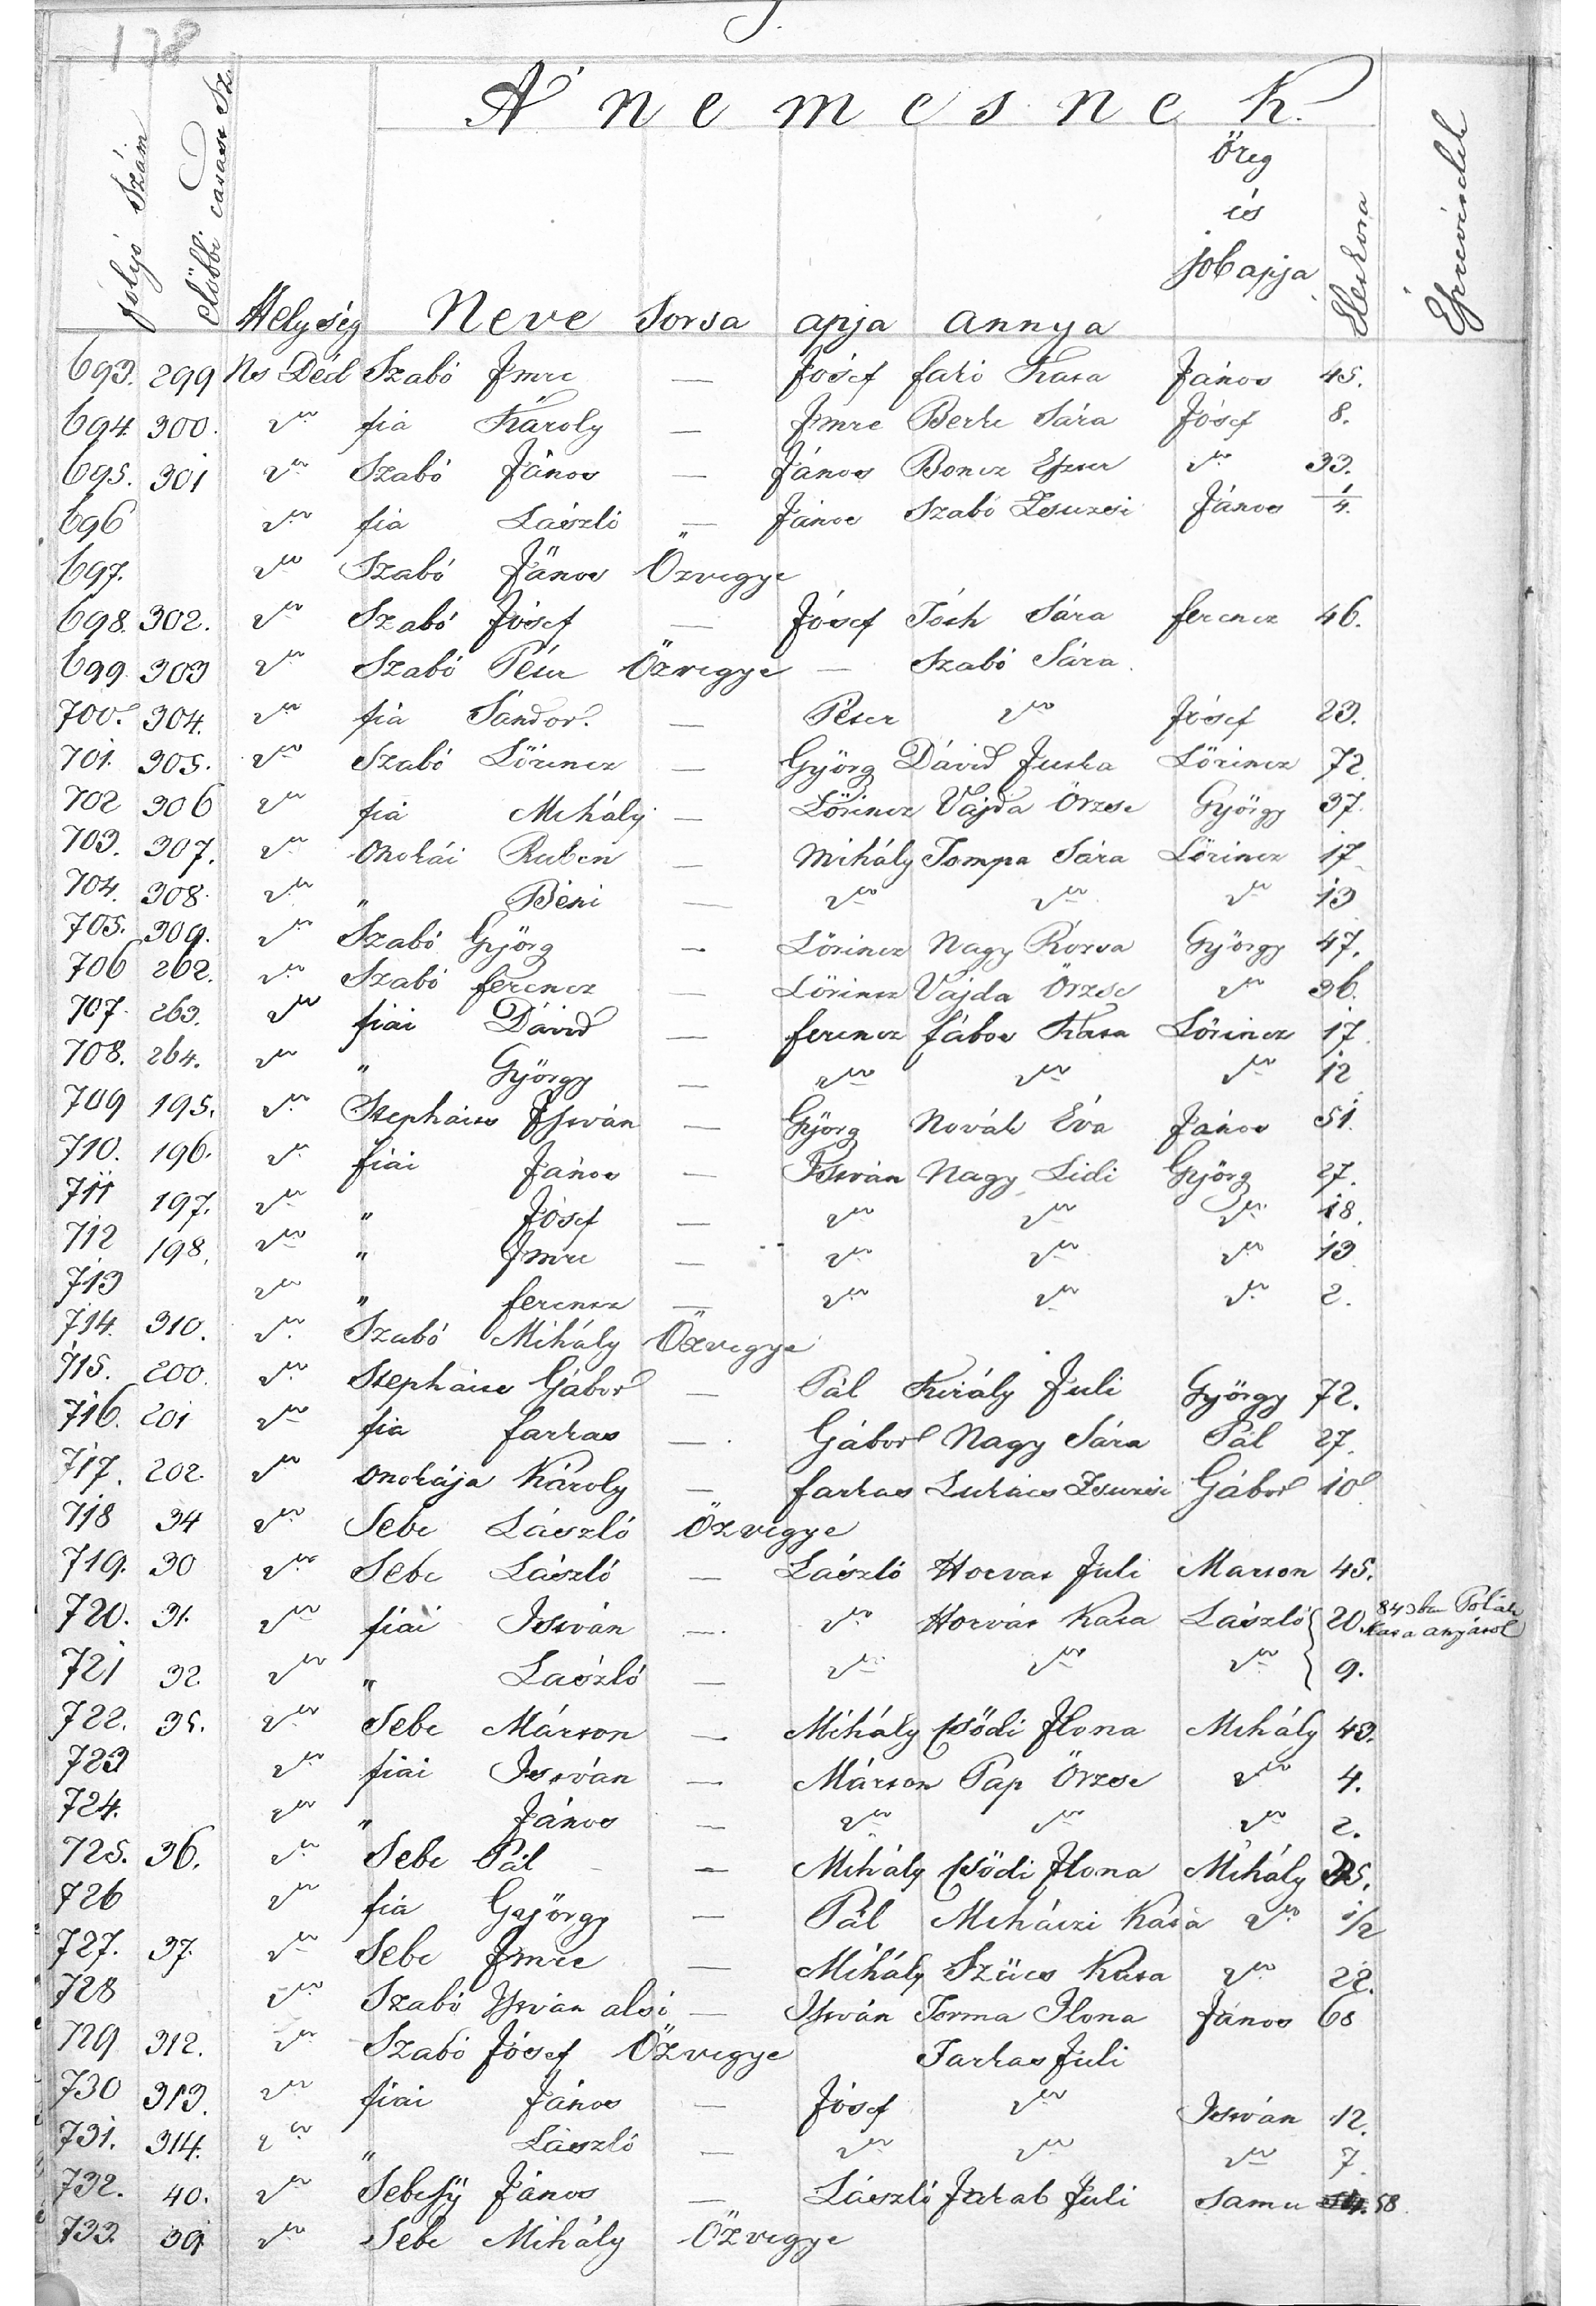 138
S.
A' nemesnek.
folyó Szám
előbbi család Sz.
Helység Neve Sorsa apja annya Öreg és jobapja Életkora Észrevételek
693. 299 Ns Déd Szabó Imre — Jósef fakó Kata János 45.
694. 300. " fia Károly — Imre Berke Sára Jósef 8.
695. 301 " Szabó János — János Boncz Eszter " 33.
696 " fia László — János Szabó Zsuzsi János 1/4.
697. " Szabó János Özvegye
698. 302. " Szabó Jósef — Jósef Tóth Sára ferencz 46.
699. 303 " Szabó Péter Özvegye — Szabó Sára.
700. 304. " fia Sándor. — Péter " Jósef 23.
701. 305. " Szabó Lőrincz — Györg Dávid Juska Lőrincz 72.
702 306 " fia Mihály — Lőrincz Vajda Örzse György 37.
703. 307. " Onokái Ruben — Mihály Tompa Sára Lőrincz 17
704. 308. " " Béni — " " " 13
705. 309. " Szabó Györg — Lőrincz Nagy Rózsa György 47.
706 262. " Szabó ferencz — Lőrincz Vajda Örzse " 36.
707. 263. " fiai Dávid — ferencz fábos Kata Lőrincz 17
708. 264. " " György — " " " 12
709 195. " Stephaits István — Györg Novák Éva János 51.
710. 196. " fiai János — István Nagy Lidi Györg 27.
711 197. " " Jósef — " " " 18.
712 198. " " Imre — " " " 13
713 " " ferencz — " " " 2.
714. 310. " Szabó Mihály Özvegye
715. 200. " Stephaics Gábor — Pál Király Juli György 72.
716. 201 " fia farkas — Gábor Nagy Sára Pál 27.
717. 202. " Onokája Károly — farkas Lukács Zsuzsi Gábor 10
718 34 " Sebe László Özvegye
719. 30 " Sebe László — László Horvát Juli Márton 45.
720. 31. " fiai István — " Horvát Kata László 20. 843ban Polák Kata anyától
721 32. " " László — " " " 9.
722. 35. " Sebe Márton — Mihály Csődi Ilona Mihály 43.
723 " fiai István — Márton Pap Örzse " 4.
724. " " János — " " " 2.
725. 36. " Sebe Pál — Mihály Csődi Ilona Mihály 35.
726 " fia György — Pál Mihátzi Kata " 1/2
727. 37. " Sebe Imre — Mihály Szűcs Kata " 22.
728 " Szabó István alsó — István Torma Ilona János 60
729 312. " Szabó Jósef Özvegye Farkas Juli
730 313. " fiai János — Jósef " István 12.
731. 314. " " László — " " " 7.
732. 40. " Sebessÿ János — László Jakab Juli Samu 58.
733. 39. " Sebe Mihály Özvegye